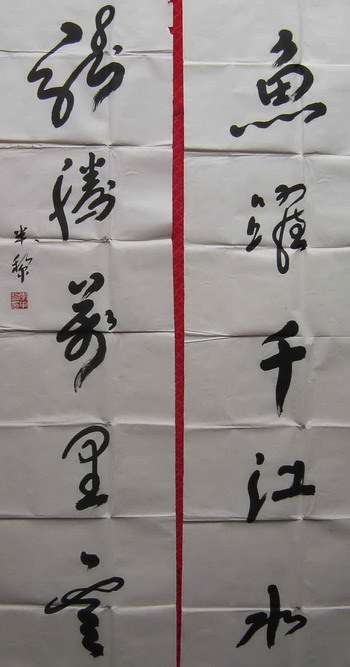 魚躍千江水
龍騰萬里雲
半黎